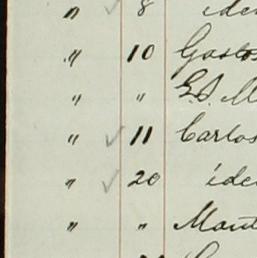 " 8 idem
" 10 Gastos
" " G. M
" 11 Carlos
" 20 idem
" "